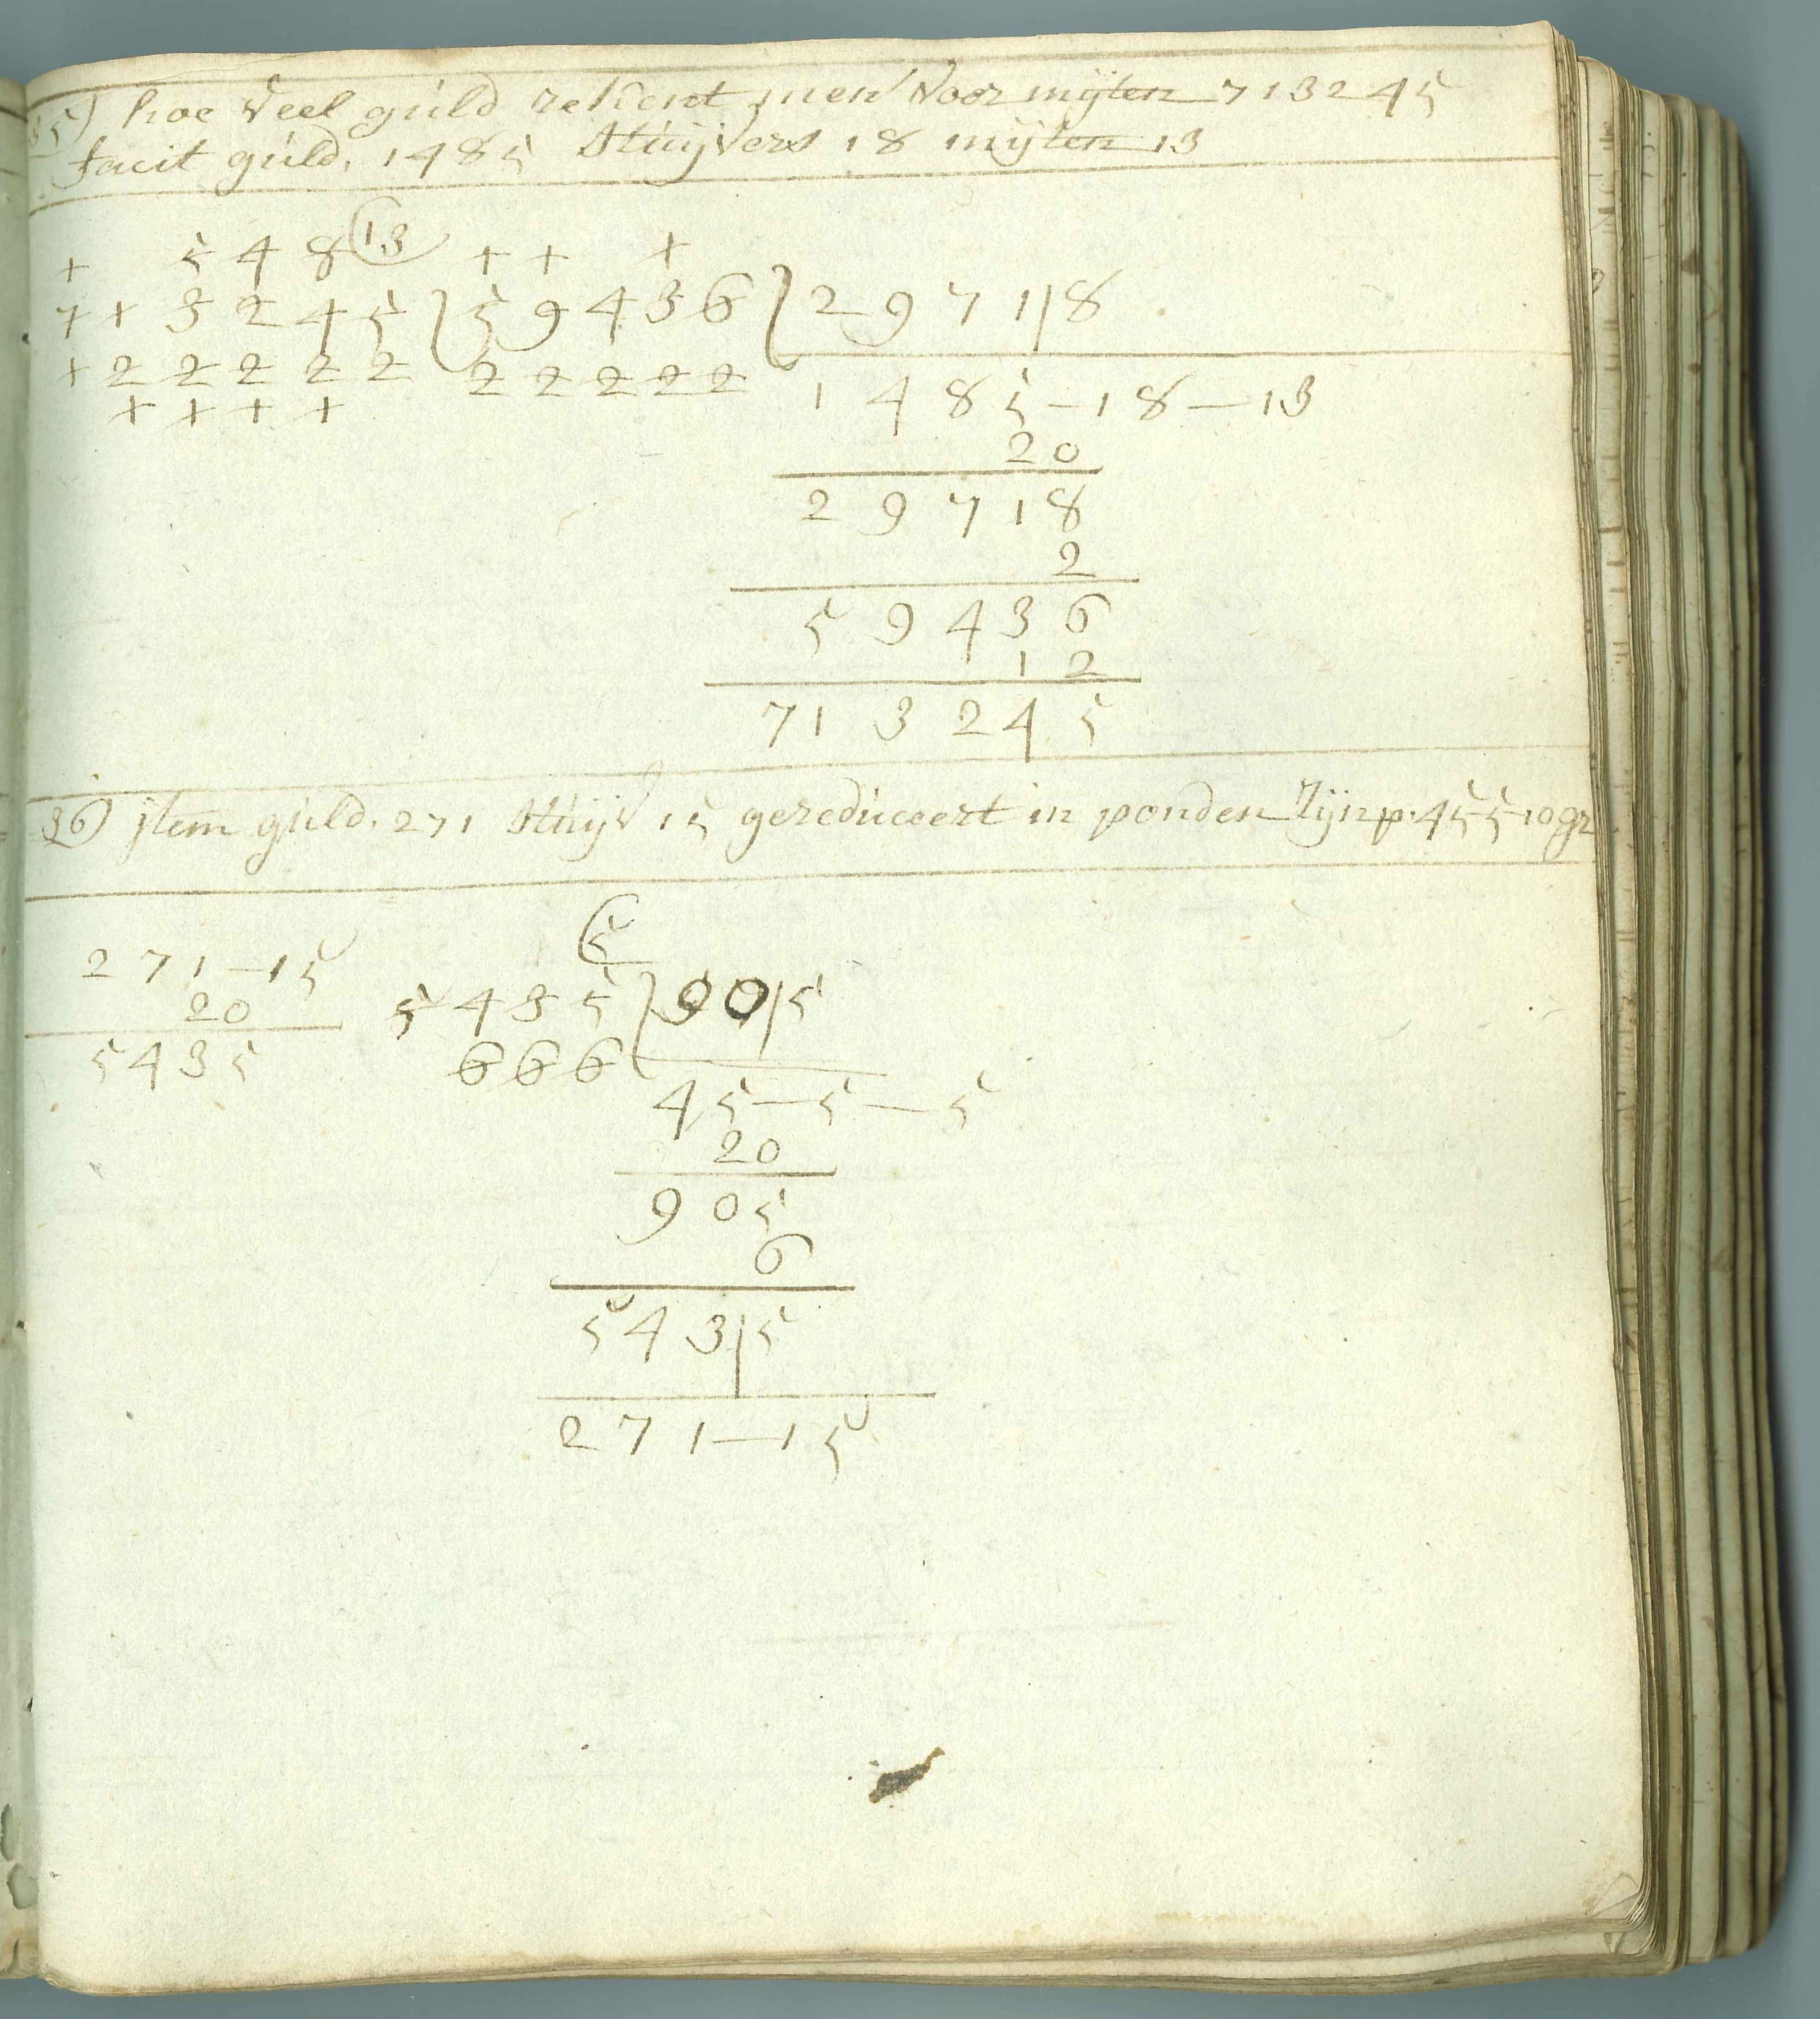 35) hoe veel guld rekent men voor mijten 713245
facit guld. 1485 Stuijvers 18 mijten 13
+ 5 4 8 (13 + + +
7 + 3 2 4 5 } 5 9 4 3 6 } 2 9 7 1 | 8
+ 2 2 2 2 2 2 2 2 2 2
1 4 8 5 – 1 8 – 13
+ + + +
2 0
2 9 7 1 8
2
5 9 4 3 6
1 2
7 1 3 2 4 5
36) jtem guld. 271 Stuijv 15 gereduceert in ponden zijn p. 45 5 10 gr
(5
2 7 1 – 1 5
2 0
5 4 3 5
5 4 3 5 } 9 0 | 5
6 6 6
4 5 – 5 – 5
2 0
9 0 5
6
5 4 3 | 5
2 7 1 – 1 5